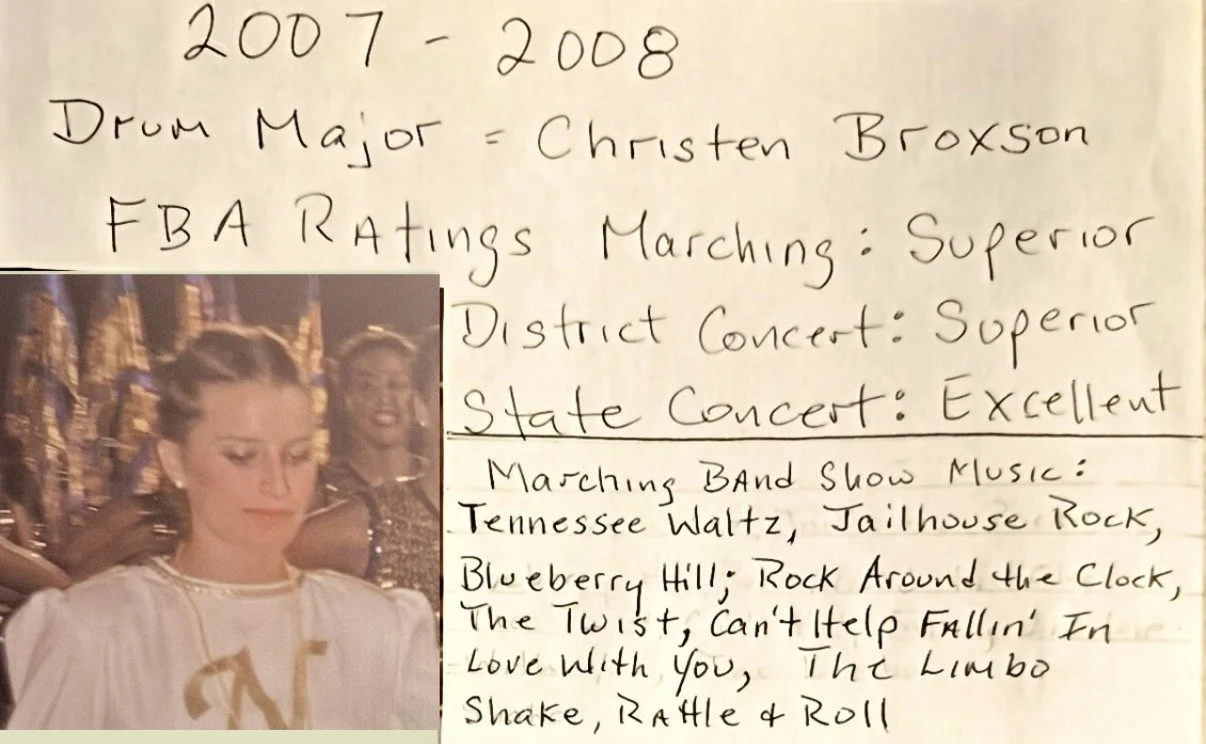 2007 - 2008
Drum Major = Christen Broxson
FBA Ratings Marching: Superior
District Concert: Superior
State Concert: Excellent
Marching Band Show Music:
Tennessee Waltz, Jailhouse Rock,
Blueberry Hill; Rock Around the Clock,
The Twist, Can't Help Fallin' In
Love With You, The Limbo
Shake, Rattle & Roll
N